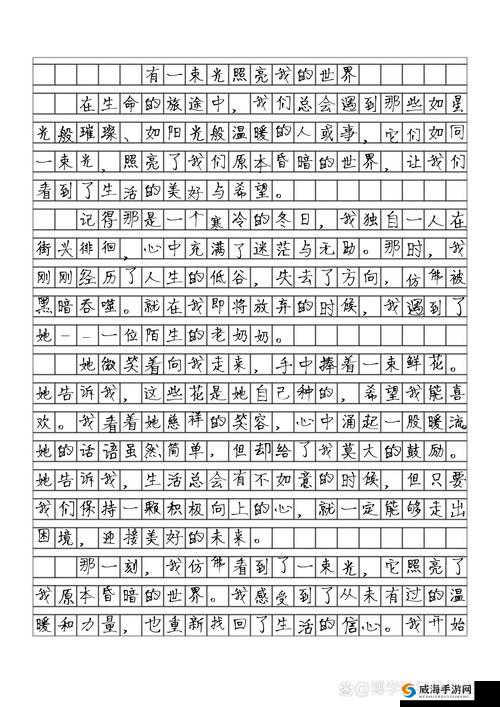 有一束光照亮我的世界
在生命的旅途中，我们总会遇到那些如星
光般璀璨、如阳光般温暖的人或事，它们如同
一束光，照亮了我们原本昏暗的世界，让我们
看到了生活的美好与希望。
记得那是一个寒冷的冬日，我独自一人在
街头徘徊，心中充满了迷茫与无助。那时，我
刚刚经历了人生的低谷，失去了方向，仿佛被
黑暗吞噬。就在我即将放弃的时候，我遇到了
她——一位陌生的老奶奶。
她微笑着向我走来，手中捧着一束鲜花。
她告诉我，这些花是她自己种的，希望我能喜
欢。我看着她慈祥的笑容，心中涌起一股暖流。
她的话语虽然简单，但却给了我莫大的鼓励。
她告诉我，生活总会有不如意的时候，但只要
我们保持一颗积极向上的心，就一定能够走出
困境，迎接美好的未来。
那一刻，我仿佛看到了一束光，它照亮了
我原本昏暗的世界。我感受到了从未有过的温
暖和力量，也重新找回了生活的信心。我开始
威海手游网